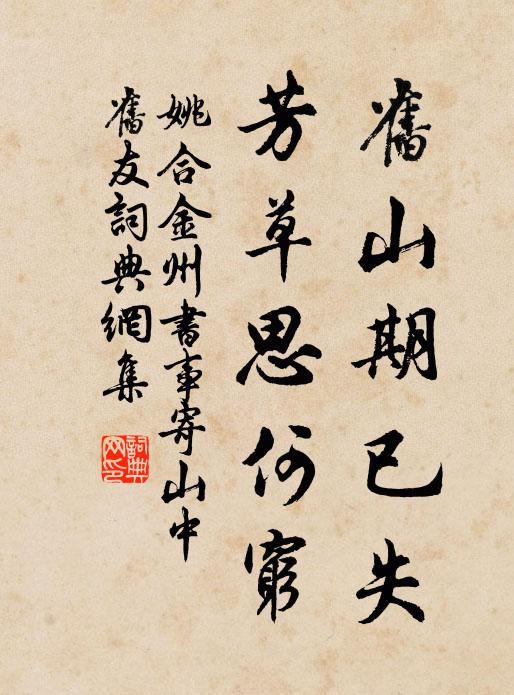 舊山期已失
芳草思何窮
姚合金州書事寄山中
舊友詞典網集
詞典
网印